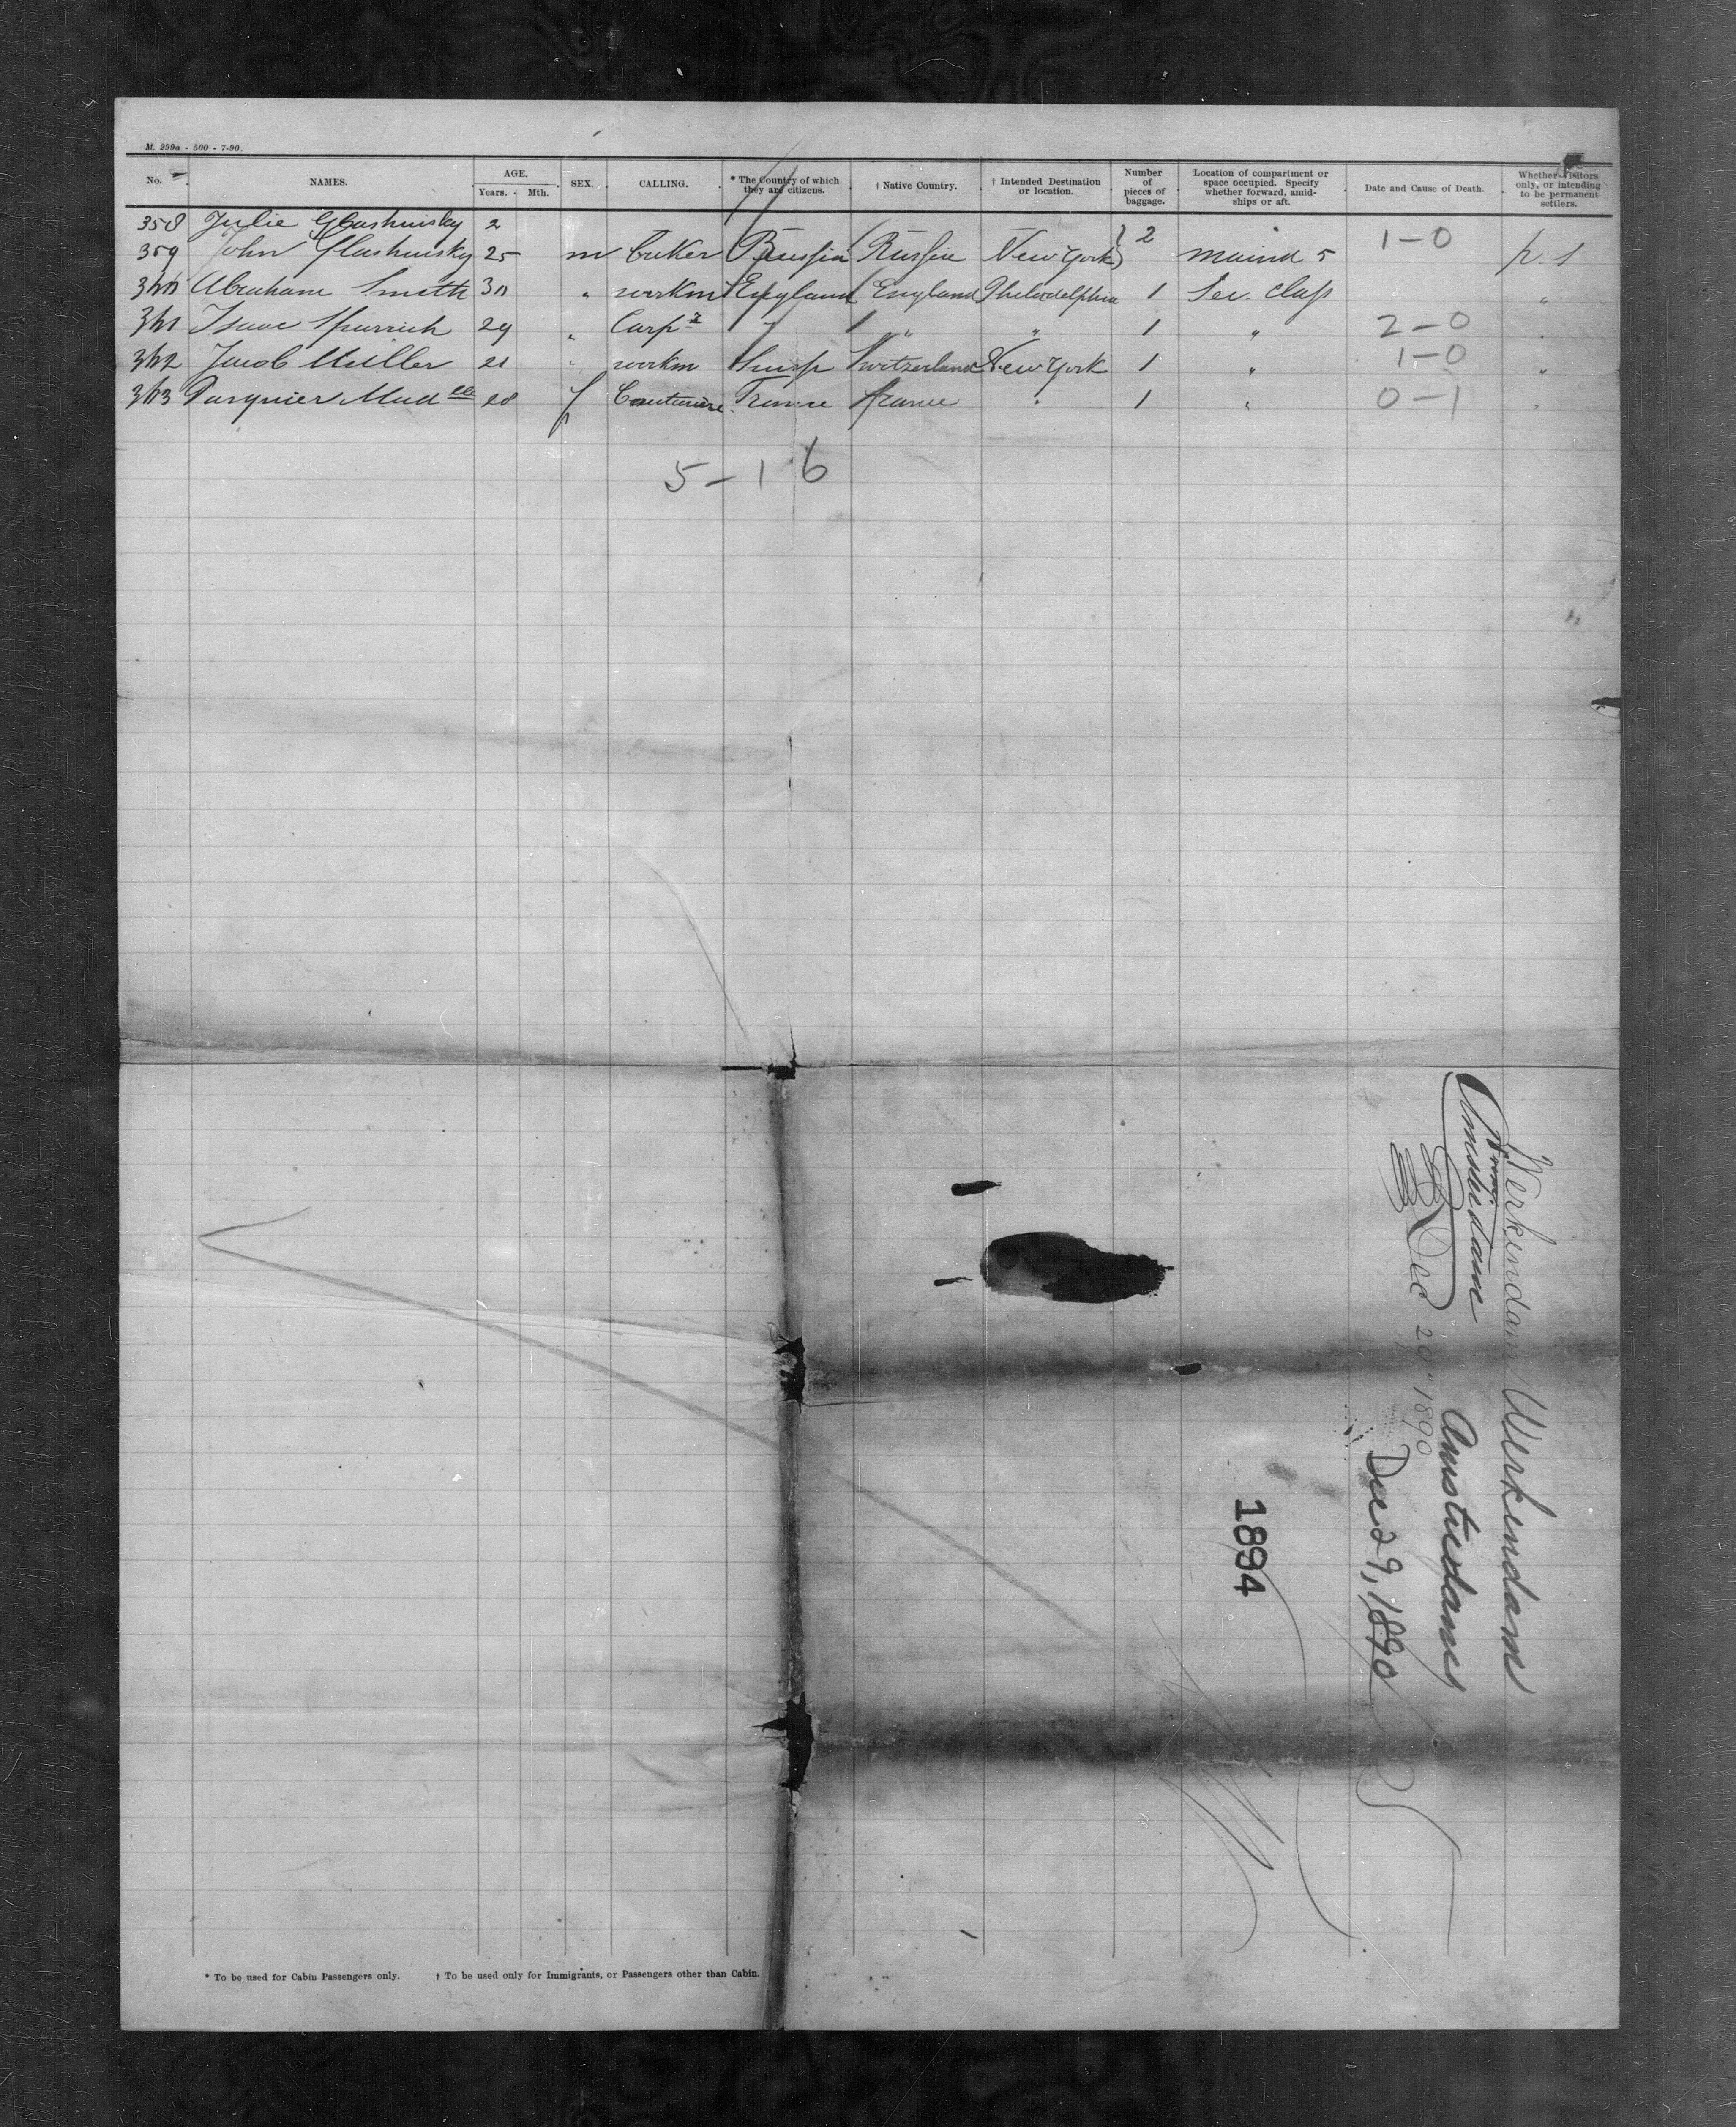 M. 299a - 500 - 7-90.
No. NAMES. AGE. Years. Mth. SEX. CALLING. * The Country of which they are citizens. † Native Country. † Intended Destination or location. Number of pieces of baggage. Location of compartment or space occupied. Specify whether forward, amidships or aft. Date and Cause of Death. Whether Visitors only, or intending to be permanent settlers.
358 Julie Glashunsky 2
359 John Glashunsky 25 m Russia Russia New York } 2 maind 5 1-0 p. s
360 Abraham Smith 30 " workm England England Philadelphia 1 Sec. Class "
361 Isaac 29 " Carpr " " " 1 " 2-0 "
362 Jacob Muller 21 " workm Swiss Switzerland New York 1 " 1-0 "
363 Madelle 28 f Couturière France France " 1 " 0-1 "
5-1 6
Werkendam Werkendam
from
Amsterdam Amsterdam
Dec 29" 1890
Dec 29, 1890
1894
* To be used for Cabin Passengers only. † To be used only for Immigrants, or Passengers other than Cabin.